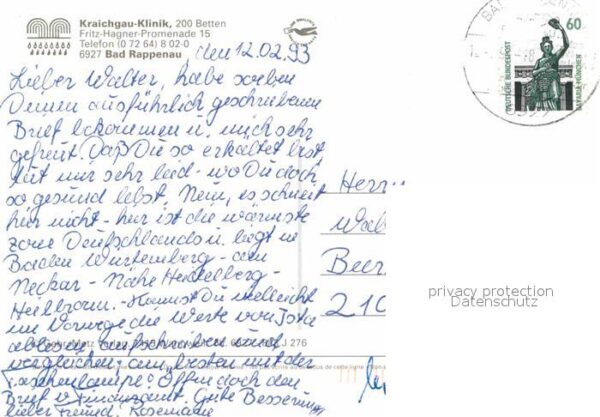 Kraichgau-Klinik, 200 Betten
Fritz-Hagner-Promenade 15
Telefon (0 72 64) 8 02-0
6927 Bad Rappenau
den 12.02.93
Lieber Walter, habe soeben
Deinen ausführlich geschriebenen
Brief bekommen u. mich sehr
gefreut. Daß Du so erkältet bist,
tut mir sehr leid - wo Du doch
so gesund lebst. Nein, es schneit
hier nicht - hier ist die wärmste
Zone Deutschlands u. liegt in
Baden Württemberg - am
Neckar - Nähe Heidelberg -
Heilbronn. - Kannst Du vielleicht
im Vorwege die Werte von
ablesen, aufschreiben und
vergleichen; am besten mit der
Taschenlampe? Öffne doch den
Brief v. Finanzamt. Gute Besserung
lieber Freund! Rosemarie
Herr
Wal
Beer
210
60
DEUTSCHE BUNDESPOST
BAVARIA MÜNCHEN
J 276
privacy protection
Datenschutz